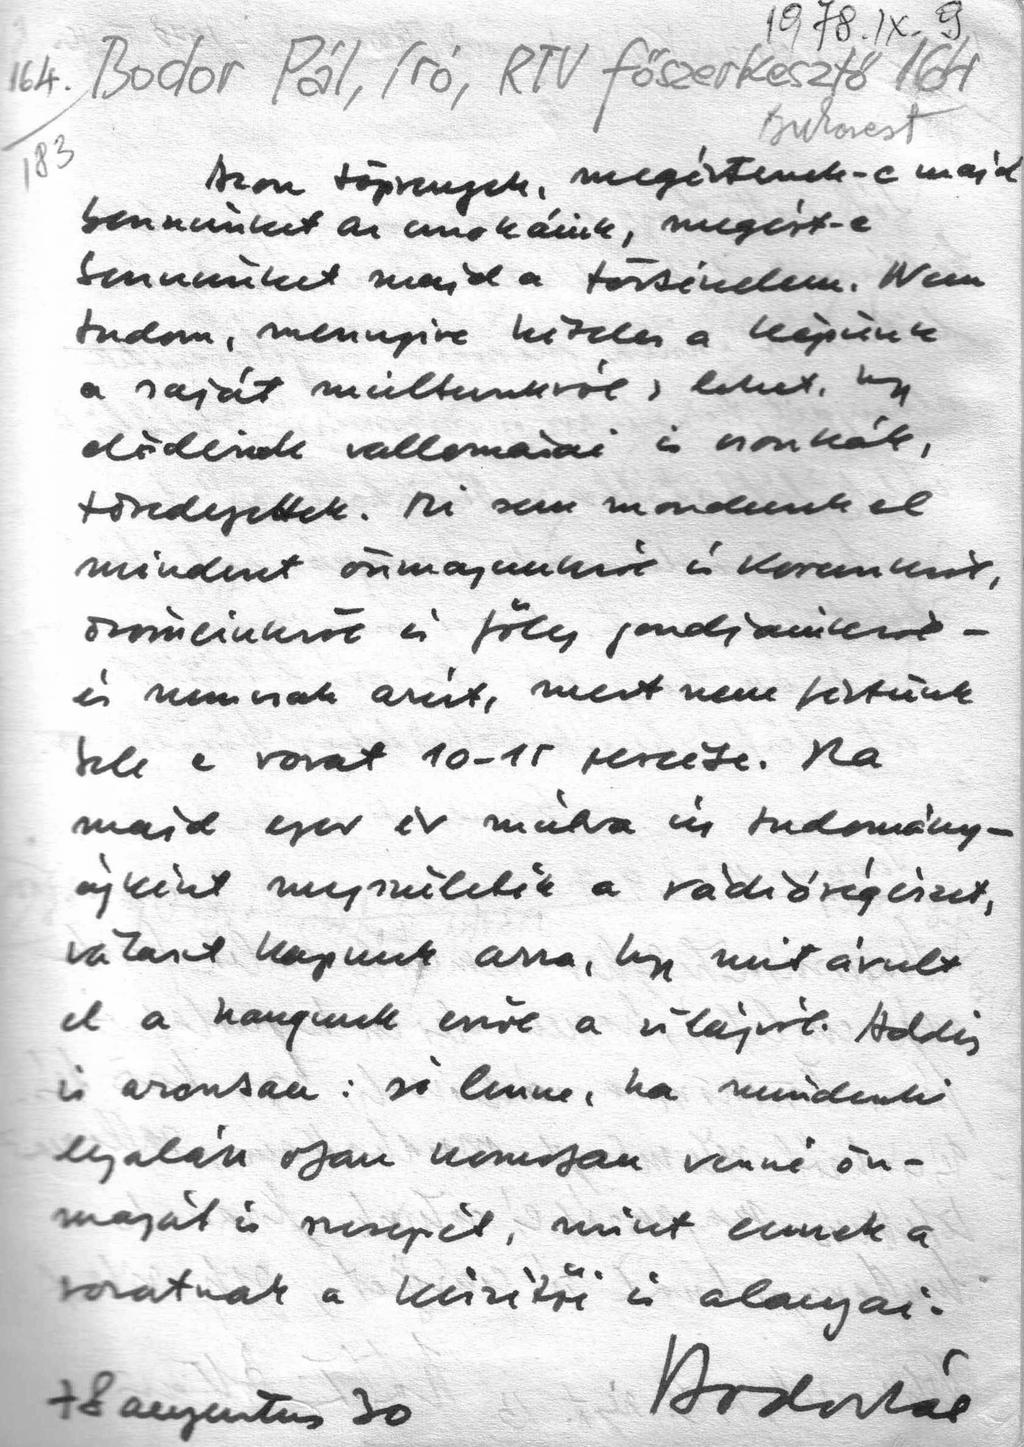 1978.IX.9
164. Bodor Pál, író, RTV főszerkesztő 164
Bukarest
183
Azon töprengek, megértenek-e majd
bennünket az unokáink, megért-e
bennünket majd a történelem. Nem
tudom, mennyire hiteles a képünk
a saját múltunkról; lehet, hogy
elődeink vallomásai is csonkák,
töredezettek. Mi sem mondunk el
mindent önmagunkról és korunkról,
örömeinkről és főleg gondjainkról –
és nemcsak azért, mert nem fértünk
bele e rovat 10-15 percébe. Ha
majd ezer év múlva új tudomány-
ágként megszületik a rádiórégészet,
választ kapunk arra, hogy mit árult
el a hangunk erről a világról. Addig
is azonban: jó lenne, ha mindenki
legalább olyan komolyan venné ön-
magát és szerepét, mint ennek a
rovatnak a készítői és alanyai.
78 augusztus 30
Bodor Pál